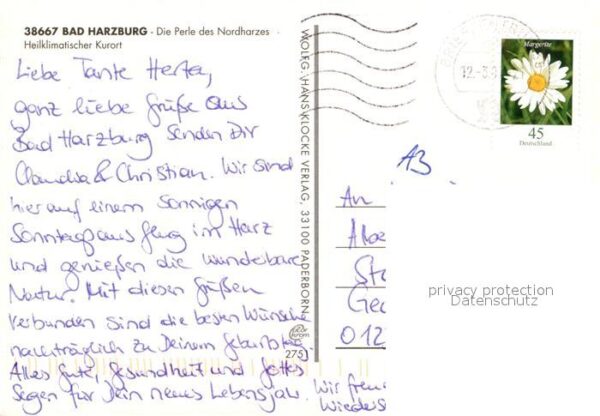 38667 BAD HARZBURG - Die Perle des Nordharzes
Heilklimatischer Kurort
Liebe Tante Herta,
ganz liebe Grüße aus
Bad Harzburg senden Dir
Claudia & Christian. Wir sind
hier auf einem sonnigen
Sonntagsausflug im Harz
und genießen die wunderbare
Natur. Mit diesen Grüßen
verbunden sind die besten Wünsche
nachträglich zu Deinem Geburtstag.
Alles Gute, Gesundheit und Gottes
Segen für Dein neues Lebensjahr.
Wir freu
Wieders
WOLFG. HANS KLOCKE VERLAG, 33100 PADERBORN
275
Margerite
45
Deutschland
12.-3.
A3
An
St
Ge
012
privacy protection
Datenschutz